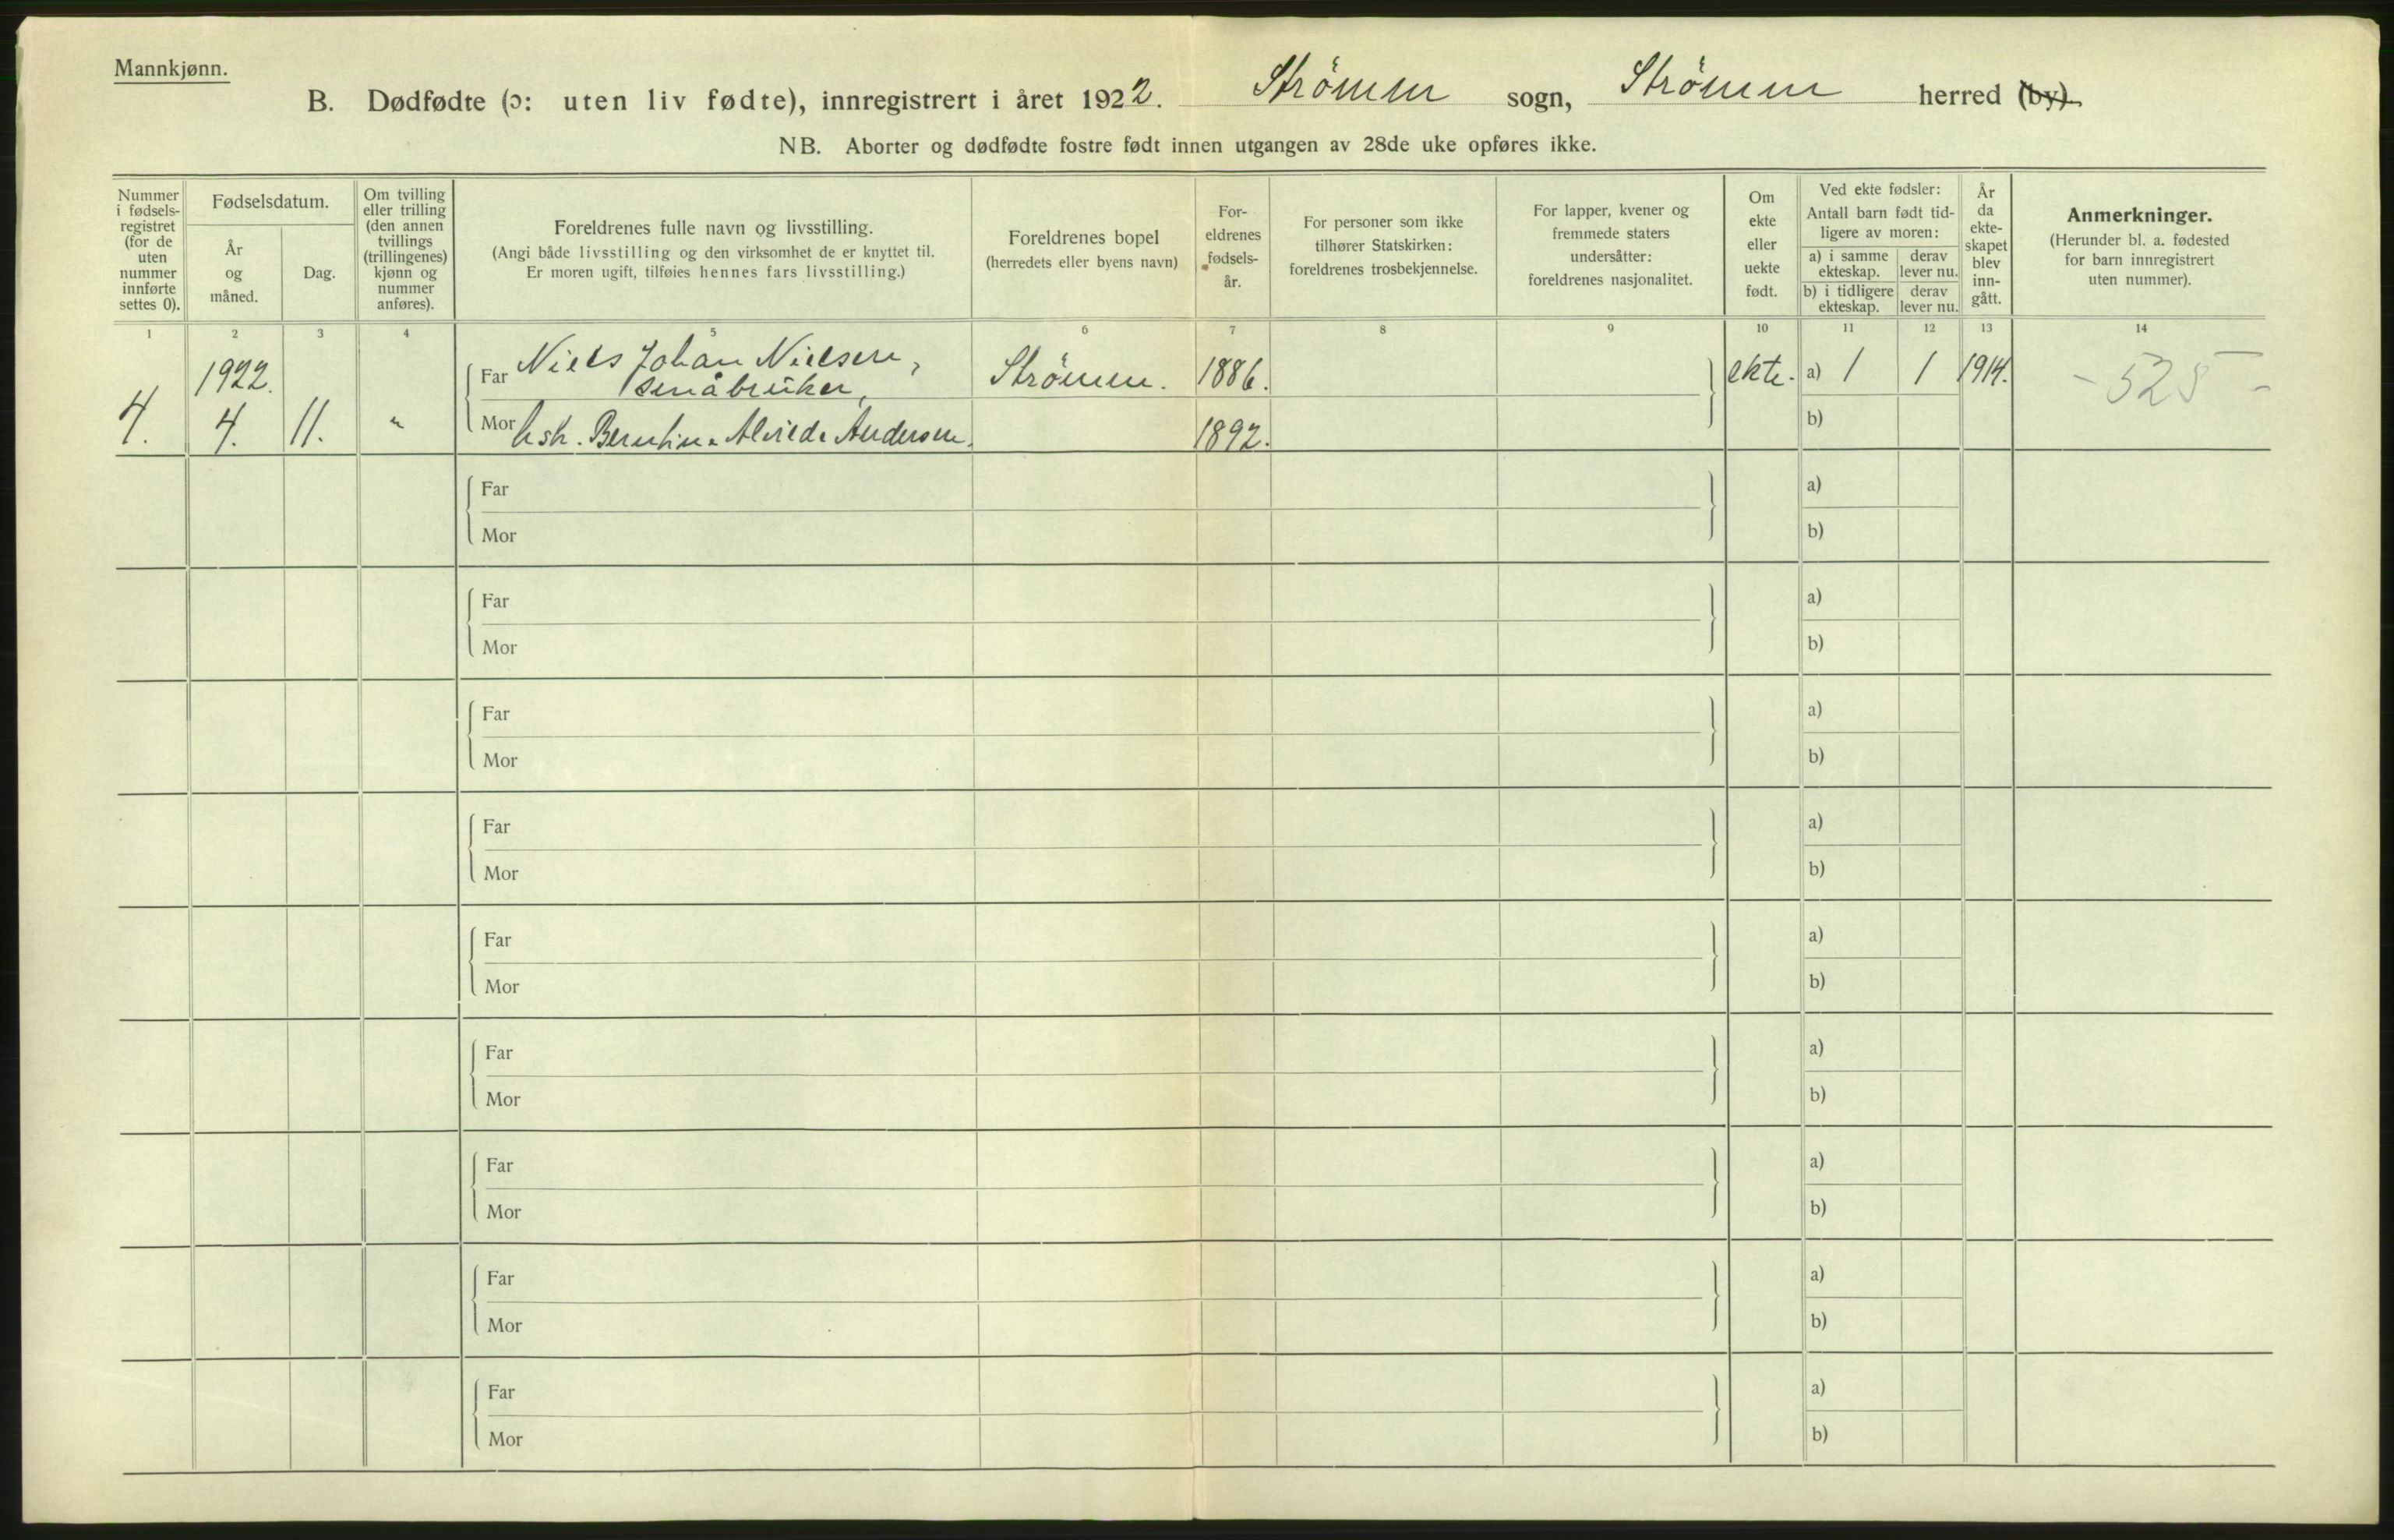 Mannkjønn.
B. Dødfødte (ɔ: uten liv fødte), innregistrert i året 1922. Strömm sogn, Strömm herred (by).
NB. Aborter og dødfødte fostre født innen utgangen av 28de uke opføres ikke.
Nummer
i fødsels-
registret
(for de
uten
nummer
innførte
settes 0).
Fødselsdatum.
År
og
måned.
Dag.
Om tvilling
eller trilling
(den annen
tvillings
(trillingenes)
kjønn og
nummer
anføres).
Foreldrenes fulle navn og livsstilling.
(Angi både livsstilling og den virksomhet de er knyttet til.
Er moren ugift, tilføies hennes fars livsstilling.)
Foreldrenes bopel
(herredets eller byens navn)
For-
eldrenes
fødsels-
år.
For personer som ikke
tilhører Statskirken:
foreldrenes trosbekjennelse.
For lapper, kvener og
fremmede staters
undersåtter:
foreldrenes nasjonalitet.
Om
ekte
eller
uekte
født.
Ved ekte fødsler:
Antall barn født tid-
ligere av moren:
a) i samme
ekteskap.
derav
lever nu.
b) i tidligere
ekteskap.
derav
lever nu.
År
da
ekte-
skapet
blev
inn-
gått.
Anmerkninger.
(Herunder bl. a. fødested
for barn innregistrert
uten nummer).
1 2 3 4 5 6 7 8 9 10 11 12 13 14
4.
1922.
4.
11.
"
Far Niels Johan Nielsen,
småbruker,
Mor hstr. Berntine Alvilde Andersen.
Strömm.
1886.
1892.
ekte.
a) 1 1 1914.
b)
- 525 -
Far a)
Mor b)
Far a)
Mor b)
Far a)
Mor b)
Far a)
Mor b)
Far a)
Mor b)
Far a)
Mor b)
Far a)
Mor b)
Far a)
Mor b)
Far a)
Mor b)